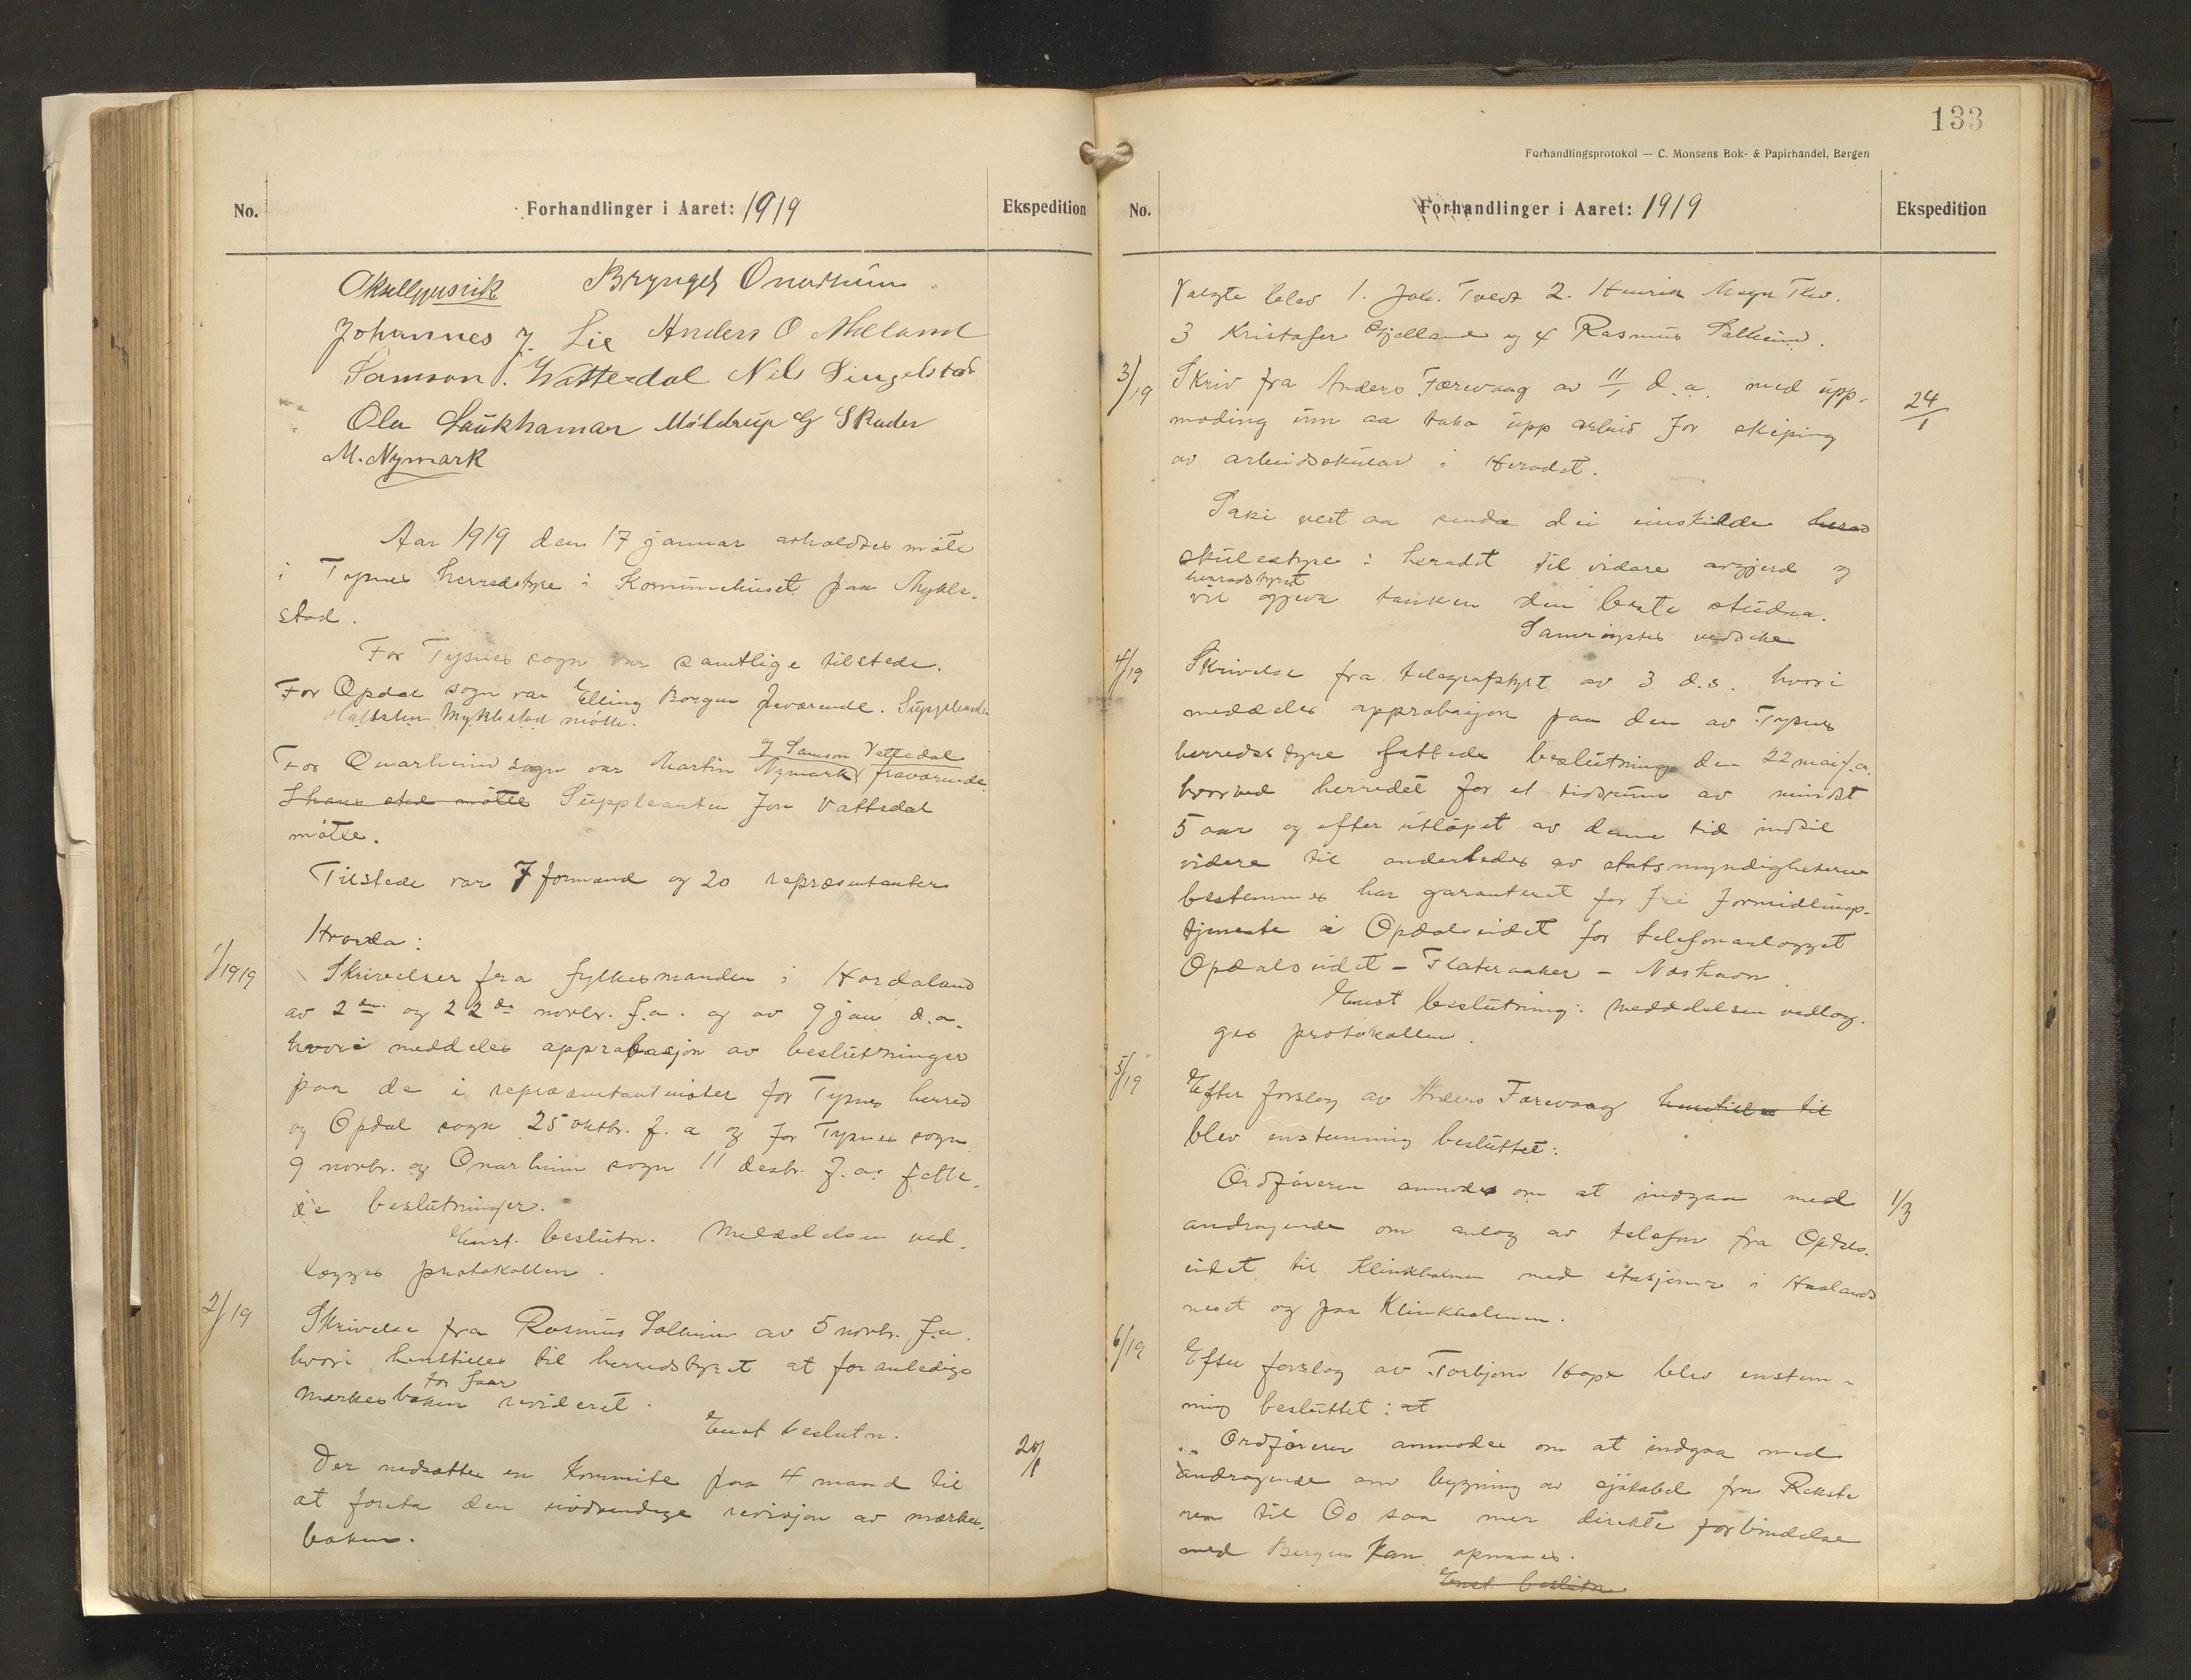 No.
Forhandlinger i Aaret: 1919
Ekspedition
Bryngel Onarheim
Johannes J. Lie Anders O Meland
Samson J. Vattedal Nils Singelstad
Ola Laukhamar Møldrup G Skuder
M. Nymark
Aar 1919 den 17 januar avholdtes møte
i Tysnes herredstyre i Kommunehuset paa Mykle-
stad.
For Tysnes sogn var samtlige tilstede.
For Opdal sogn var Elling Borgen fraværende. Suppleanten
Halsten Myklestad møtte.
og Samson Vattedal
For Onarheim sogn var Martin Nymark fraværende.
I hans sted møtte Suppleanten Jon Vattedal
møtte.
Tilstede var 7 formænd og 20 repræsentanter
Hrørda:
1/1919
Skrivelser fra fylkesmanden i Hordaland
av 2den og 22de novbr. f.a. og av 9 jan d.a.
hvori meddeles approbasjon av beslutninger
paa de i repræsentantmøter for Tysnes herred
og Opdal sogn 25 oktbr. f.a og for Tysnes sogn
9 novbr. og Onarheim sogn 11 desbr. f.a. fatte-
de beslutninger.
Enst. beslutn. Meddelelsen ved-
lægges protokollen.
2/19
Skrivelse fra Rasmus Solheim av 5 novbr. f.a.
hvori henstilles til herredstyret at foranledige
for faar
merkesboken revideret.
Enst beslutn.
20/1
Der nedsættes en Kommite paa 4 mand til
at foreta den nødvendige revisjon av merkes-
boken.
133
Forhandlingsprotokol — C. Monsens Bok- & Papirhandel, Bergen
No.
Forhandlinger i Aaret: 1919
Ekspedition
Valgte blev 1. Jak. Tvedt 2. Henrik Magn
3 Kristofer Gjelland og 4 Rasmus Solheim.
3/19
Skriv fra Anders Færevaag av 11/1 d.a. med upp-
24/1
moding um aa taka upp arbeid for skiping
av arbeidsskular i Heradet.
Saki vert aa senda dei einskilde herad
skulestyre i heradet til vidare avgjerd og
heradstyret
vil gjeva tanken den beste studna.
Samrøystes vedteke
4/19
Skrivelse fra telegrafstyret av 3 d.s. hvori
meddeles approbasjon paa den av Tysnes
herredsstyre fattede beslutning den 22 mai f.a.
hvorved herredet for et tidsrum av mindst
5 aar og efter utløpet av denne tid indtil
videre til anderledes av statsmyndigheterne
bestemmes har garanteret for fri formidlings-
tjeneste i Opdalseidet for telefonanlægget
Opdalseidet – Flateraaker – Neshavn.
Enst beslutning: Meddelelsen vedlæg-
ges protokollen.
5/19
Efter forslag av Anders Færevaag henstiles til
blev enstemmig besluttet:
Ordføreren anmodes om at indgaa med
1/3
andragende om anlæg av telefon fra Opdals-
eidet til Klinkholmen med stasjoner i Haalands
neset og paa Klinkholmen.
6/19
Efter forslag av Torbjørn Hope blev enstem-
mig besluttet: at
Ordføreren anmodes om at indgaa med
andragende om bygning av sjøkabel fra Rekste
ren til Os saa mer direkte forbindelse
med Bergen kan opnaaes.
Enst. beslutn